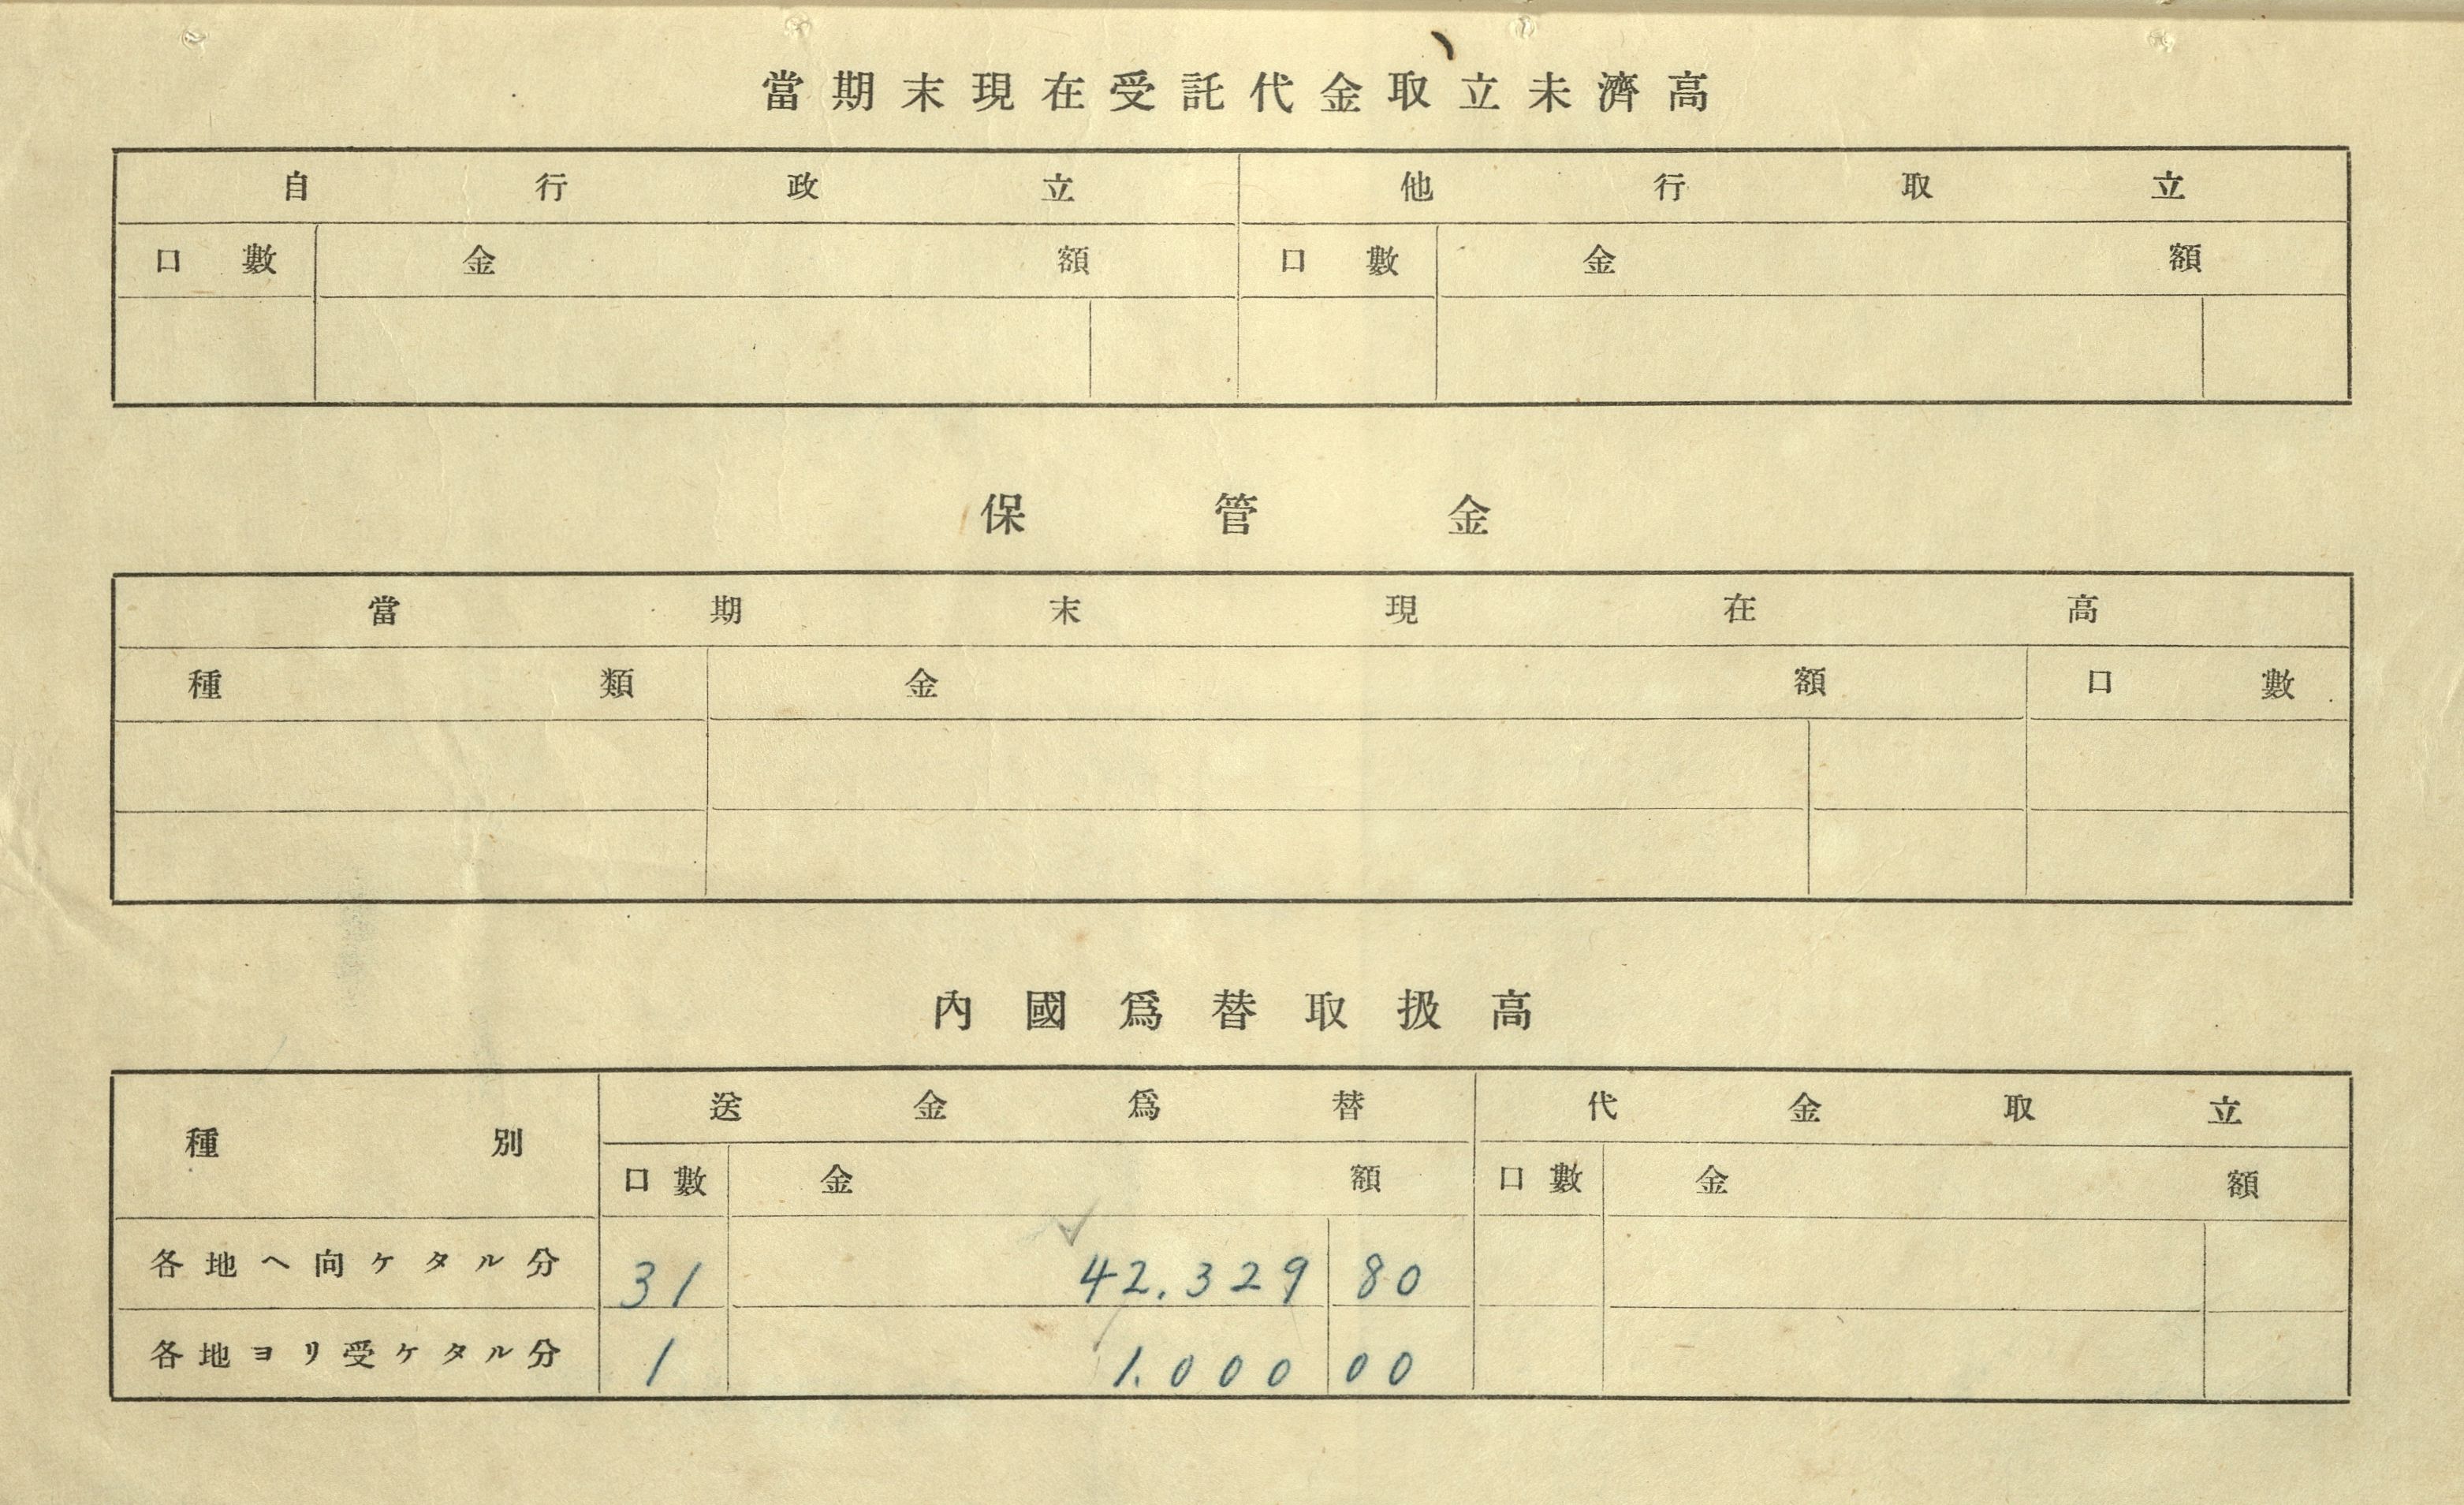 當期末現在受託代金取立未濟高
自行政立 他行取立
口數 金額 口數 金額
保管金
當期末現在高
種類 金額 口數
內國爲替取扱高
種別 送金爲替 代金取立
口數 金額 口數 金額
各地ヘ向ケタル分 31 42.329 80
各地ヨリ受ケタル分 1 1.000 00